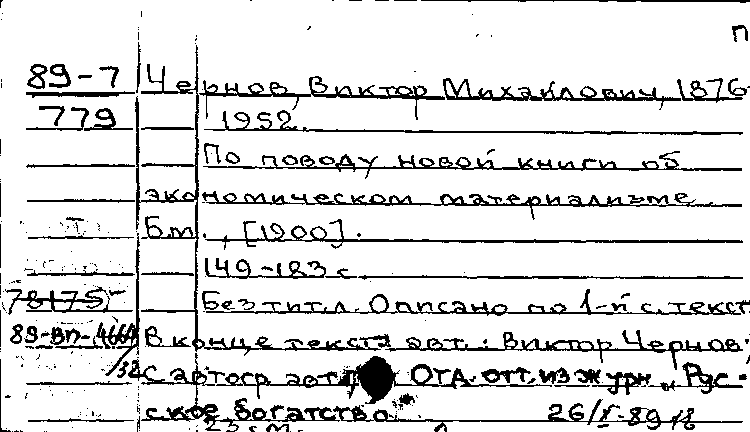 п
89-7 Чернов, Виктор Михайлович, 1876-
779 1952.
По поводу новой книги об
экономическом материализме.
Б.м., [1900].
149-183 с.
78175 Без тит.л. Описано по 1-й с. текст
89-вп- В конце текста авт.: Виктор Чернов;
/32 с автогр. авт. Отд. отт. из журн „Рус-
ское богатство. 26/I-89
23 см.